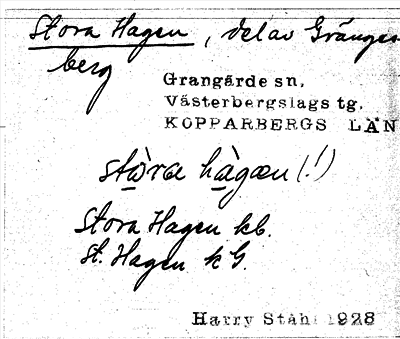 Stora Hagen, del av Gränges
berg
Grangärde sn.
Västerbergslags tg.
KOPPARBERGS LÄN
stòra hàgæn (!)
Stora Hagen kb.
St. Hagen k G.
Harry Ståhl 1928